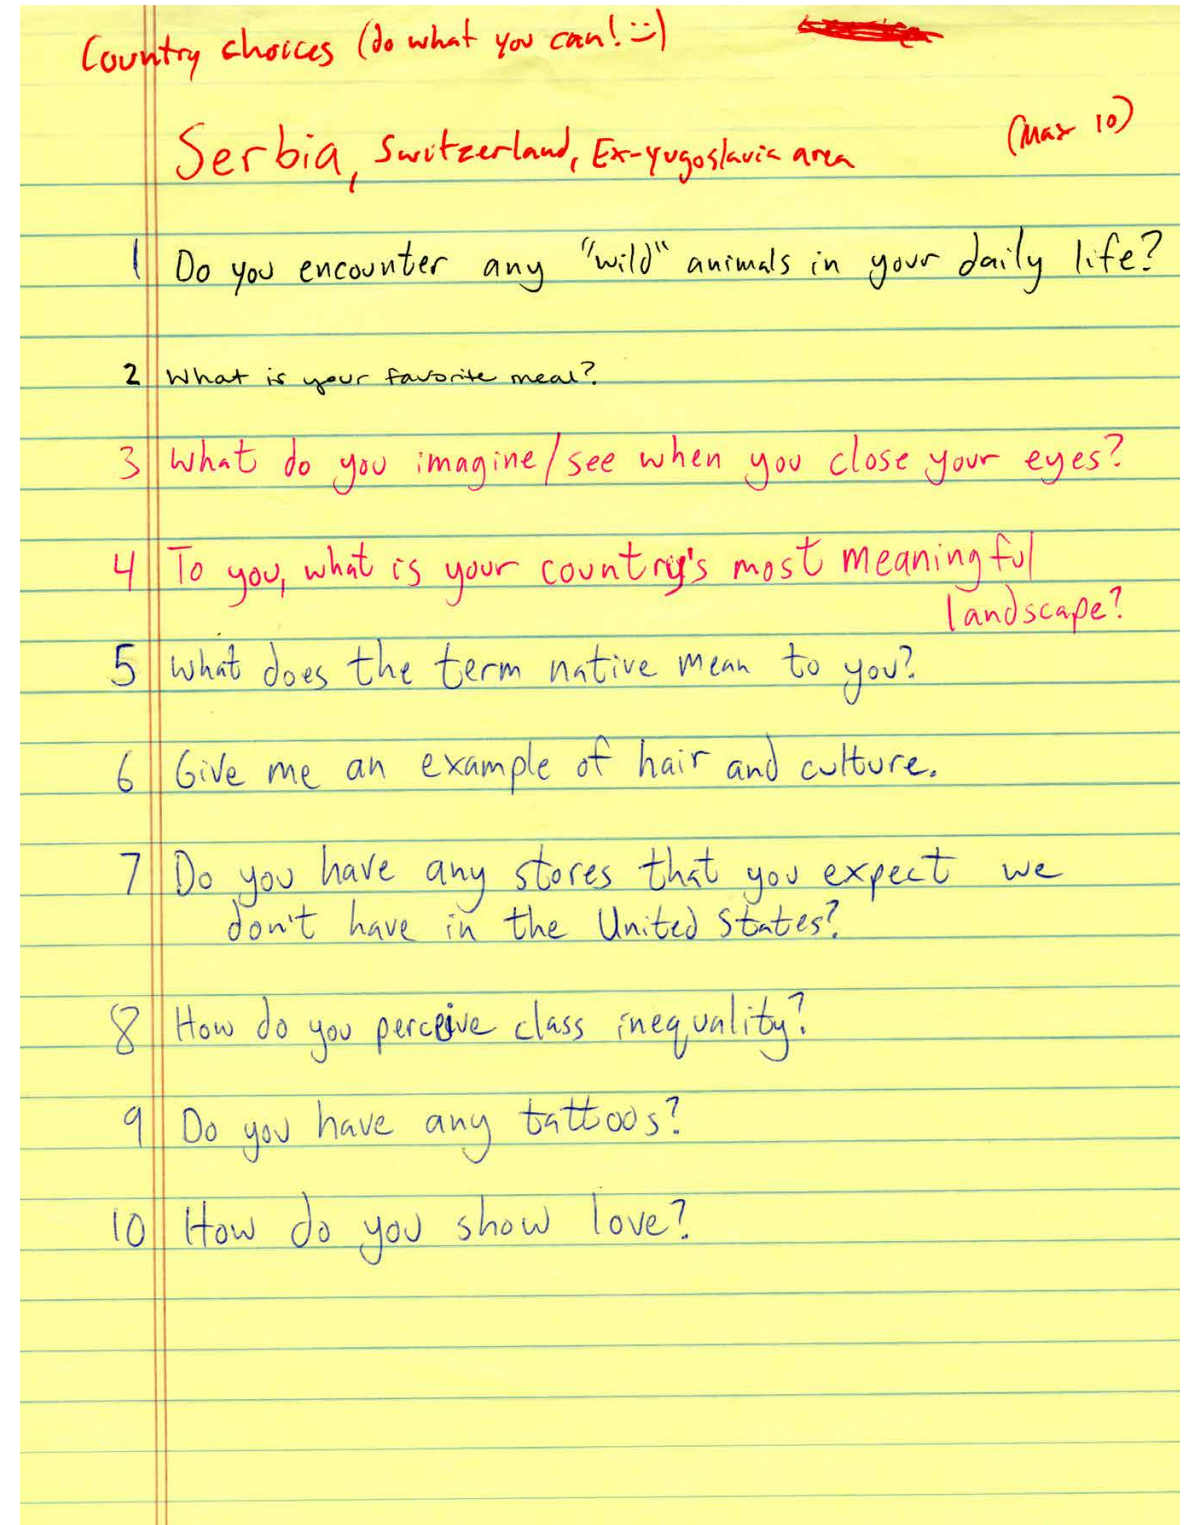 Country choices (do what you can! :-)
Serbia, Switzerland, Ex-Yugoslavia area
(Max 10)
1 Do you encounter any "wild" animals in your daily life?
2 What is your favorite meal?
3 What do you imagine/see when you close your eyes?
4 To you, what is your country's most meaningful
landscape?
5 What does the term native mean to you?
6 Give me an example of hair and culture.
7 Do you have any stores that you expect we
don't have in the United States?
8 How do you perceive class inequality?
9 Do you have any tattoos?
10 How do you show love?